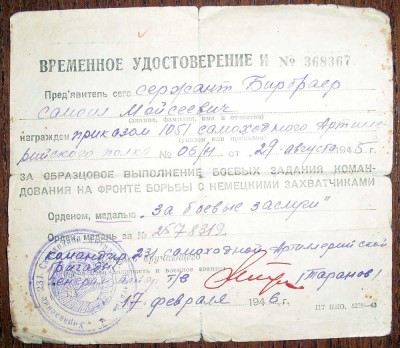 ВРЕМЕННОЕ УДОСТОВЕРЕНИЕ И № 368367
Пред'явитель сего сержант Бирбраер
Самоил Мойсеевич
(звание, фамилия, имя и отчество)
награжден приказом 1051 самоходного Артилле-
рийского полка
№ 06/н от 29 августа 1945 г.
ЗА ОБРАЗЦОВОЕ ВЫПОЛНЕНИЕ БОЕВЫХ ЗАДАНИЯ КОМАН-
ДОВАНИЯ НА ФРОНТЕ БОРЬБЫ С НЕМЕЦКИМИ ЗАХВАТЧИКАМИ
Орденом, медалью "За боевые заслуги"
Орден медаль за №
командир 231 самоходной Артиллерийской
бригады
генерал майор т/в (Таранов)
17 февраля 1946 г.